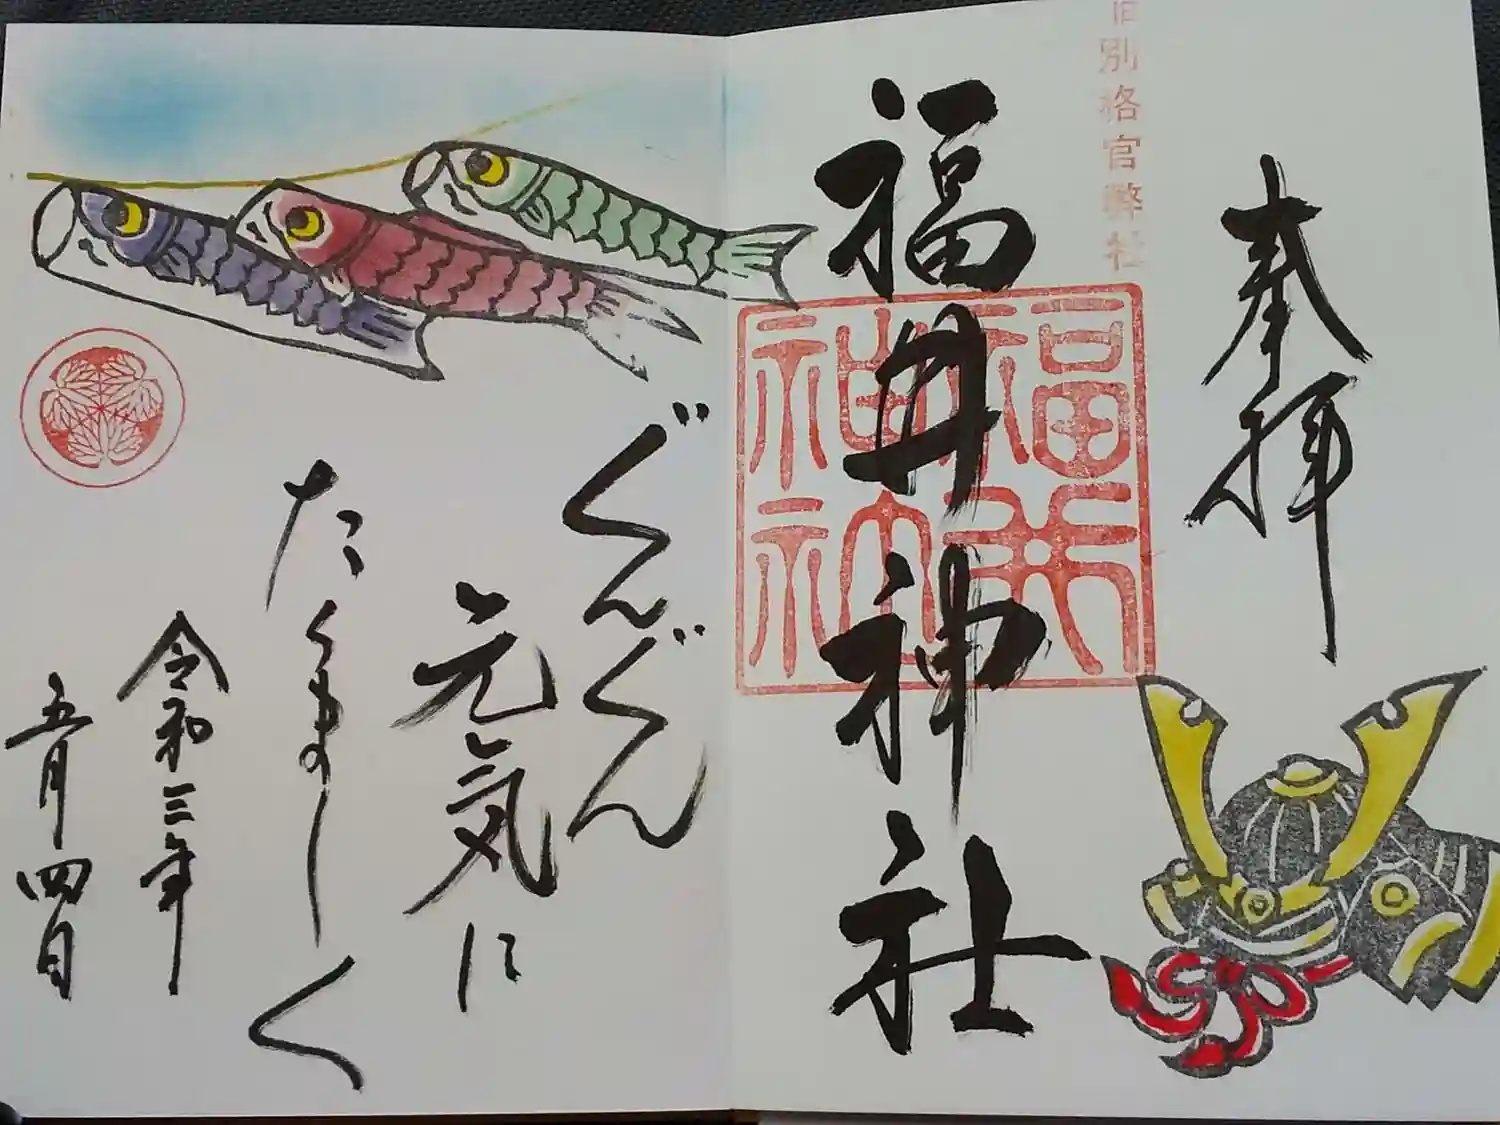 奉拝
旧別格官幣社
福井神社
福井神社
ぐんぐん
元気に
たくましく
令和三年
五月四日